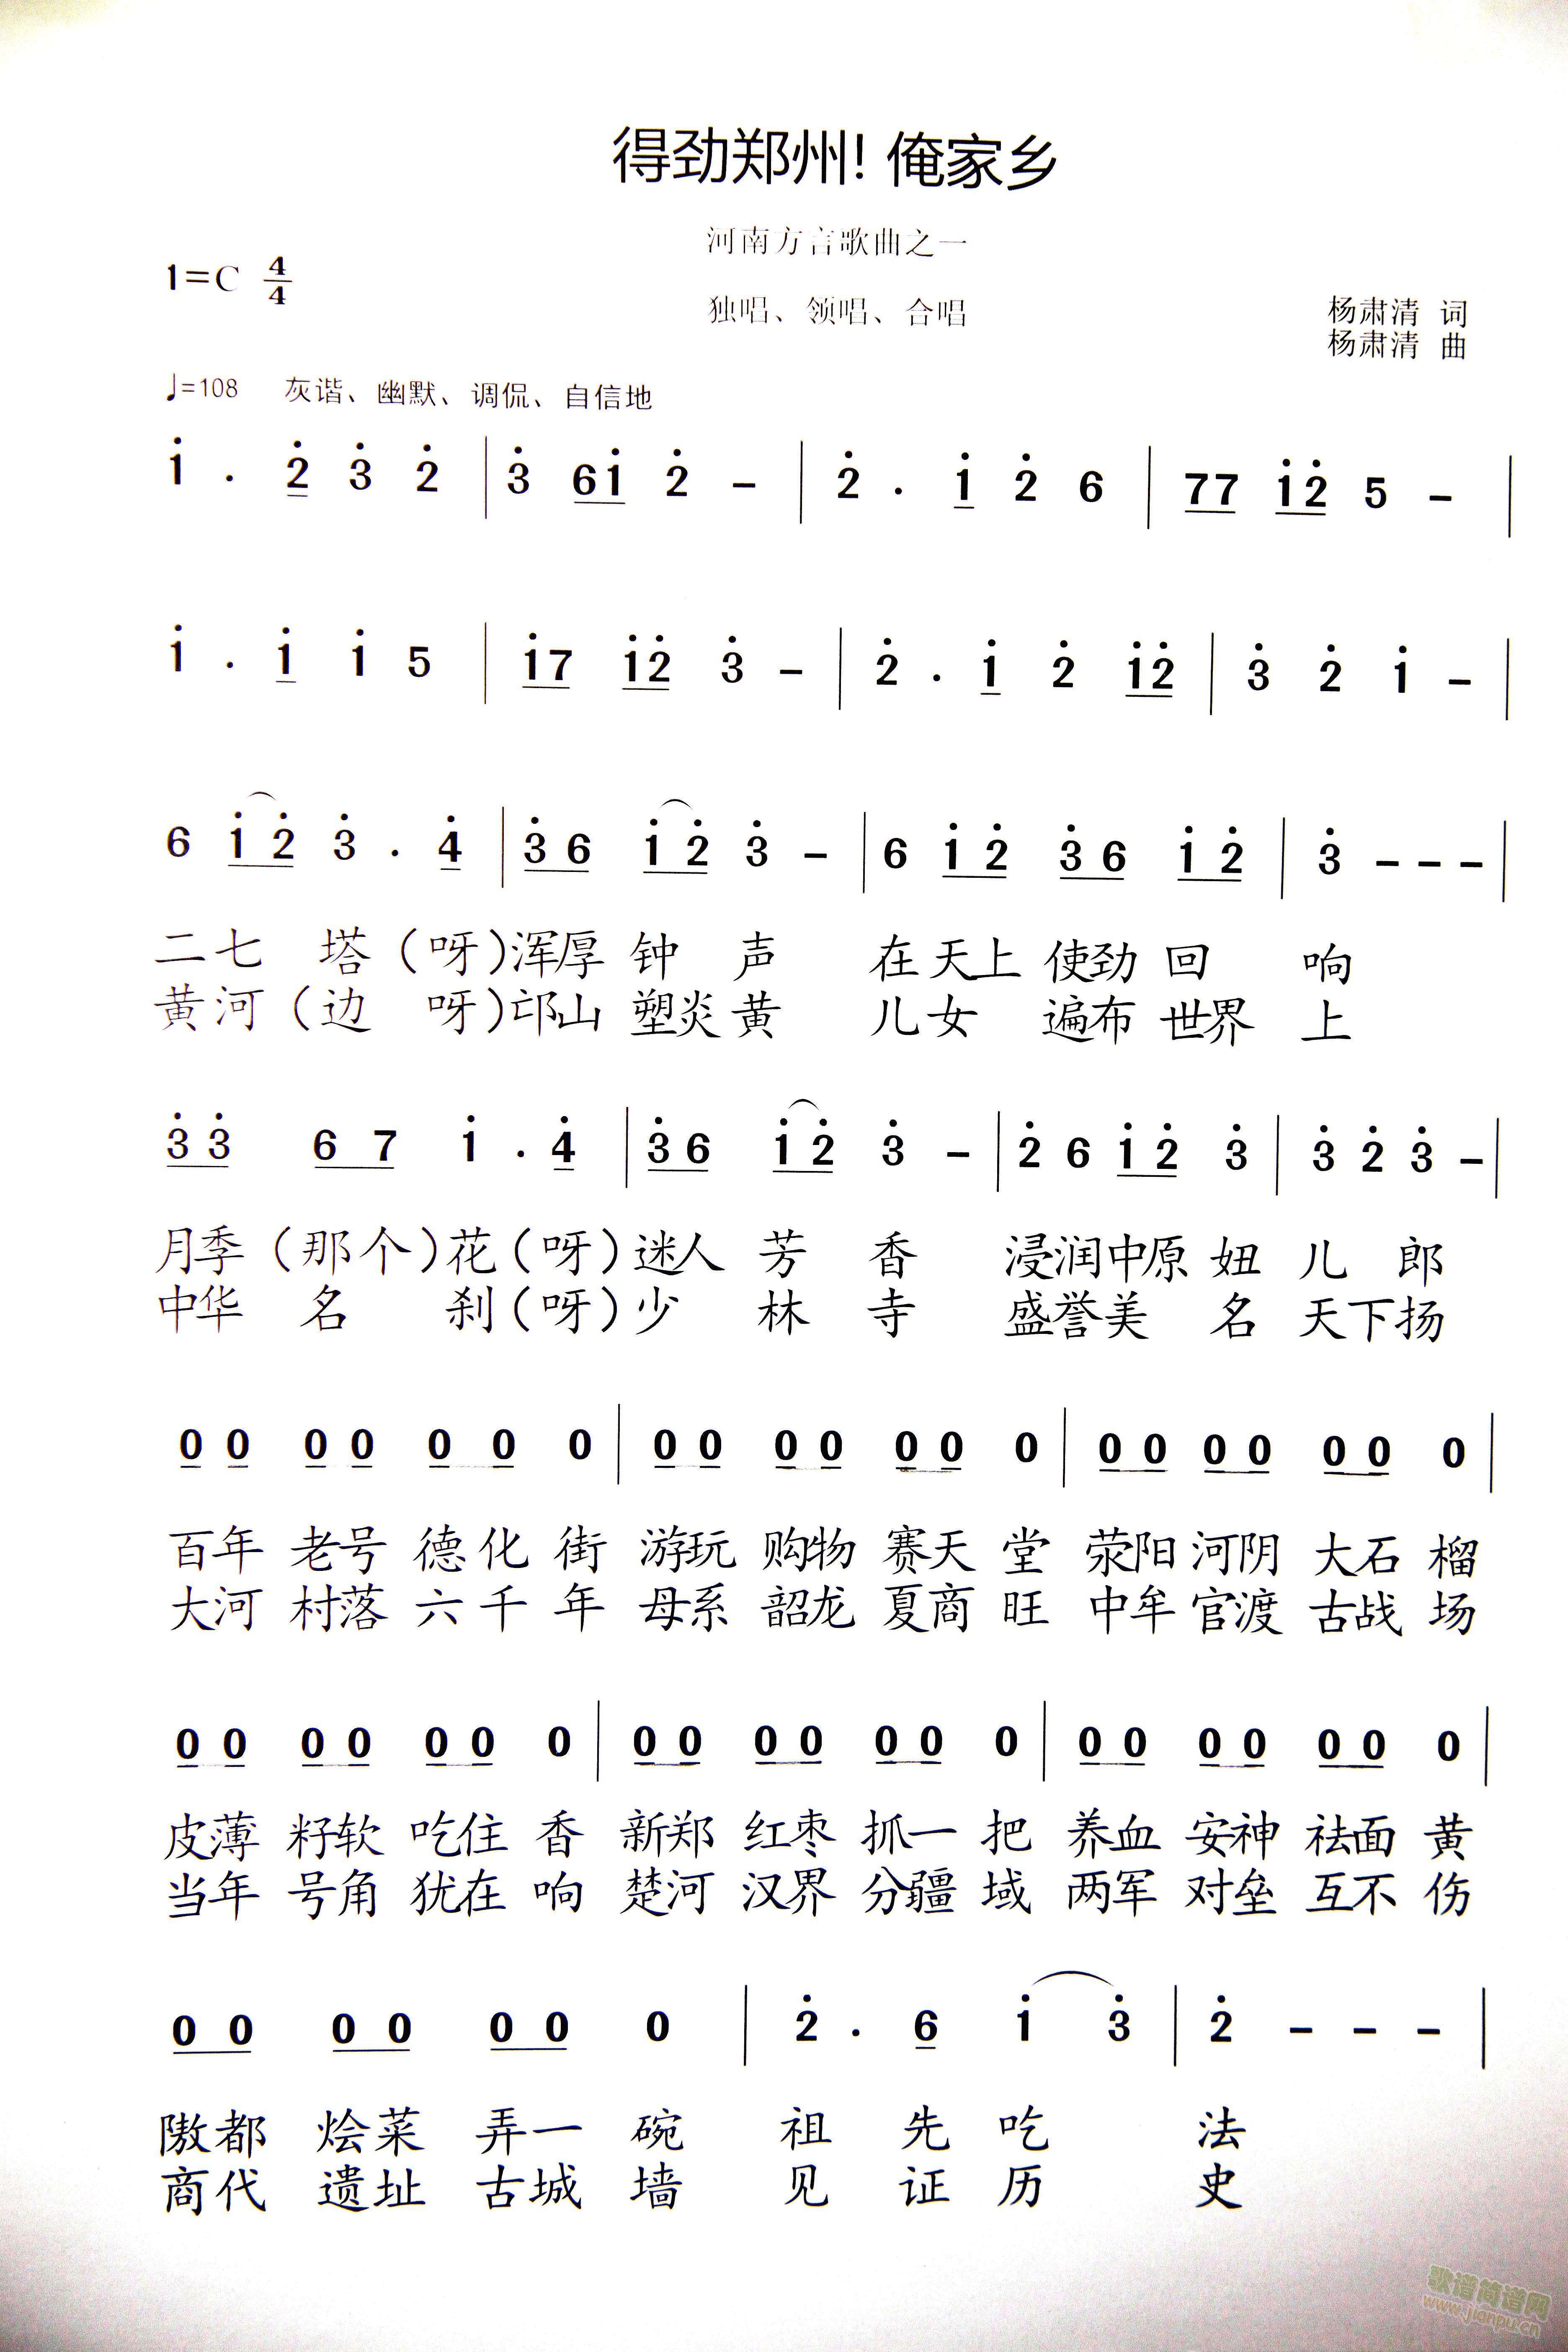 得劲郑州！俺家乡
河南方言歌曲之一
1=C 4/4
独唱、领唱、合唱
杨肃清 词
杨肃清 曲
♩=108 灰谐、幽默、调侃、自信地
i . 2̇ 3̇ 2̇ | 3̇ 6i 2̇ – | 2̇ . i 2̇ 6 | 77 i2̇ 5 – |
i . i i 5 | i7 i2̇ 3̇ – | 2̇ . i 2̇ i2̇ | 3̇ 2̇ i – |
6 i 2̇ 3̇ . 4̇ | 3̇ 6 i 2̇ 3̇ – | 6 i 2̇ 3̇ 6 i 2̇ | 3̇ – – – |
二七 塔（呀）浑厚 钟 声 在天上 使劲 回 响
黄河（边 呀）邙山 塑炎黄 儿女 遍布 世界 上
3̇ 3̇ 6 7 i . 4̇ | 3̇ 6 i 2̇ 3̇ – | 2̇ 6 i 2̇ 3̇ | 3̇ 2̇ 3̇ – |
月季（那个）花（呀）迷人 芳 香 浸润中原 妞 儿 郎
中华 名 刹（呀）少 林 寺 盛誉美 名 天下扬
0 0 0 0 0 0 0 | 0 0 0 0 0 0 0 | 0 0 0 0 0 0 0 |
百年 老号 德化 街 游玩 购物 赛天 堂 荥阳 河阴 大石 榴
大河 村落 六千 年 母系 韶龙 夏商 旺 中牟 官渡 古战 场
0 0 0 0 0 0 0 | 0 0 0 0 0 0 0 | 0 0 0 0 0 0 0 |
皮薄 籽软 吃住 香 新郑 红枣 抓一 把 养血 安神 祛面 黄
当年 号角 犹在 响 楚河 汉界 分疆 域 两军 对垒 互不 伤
0 0 0 0 0 0 0 | 2̇ . 6̇ i 3̇ | 2̇ – – – |
隞都 烩菜 弄一 碗 祖 先 吃 法
商代 遗址 古城 墙 见 证 历 史
歌谱简谱网
www.jianpu.cn